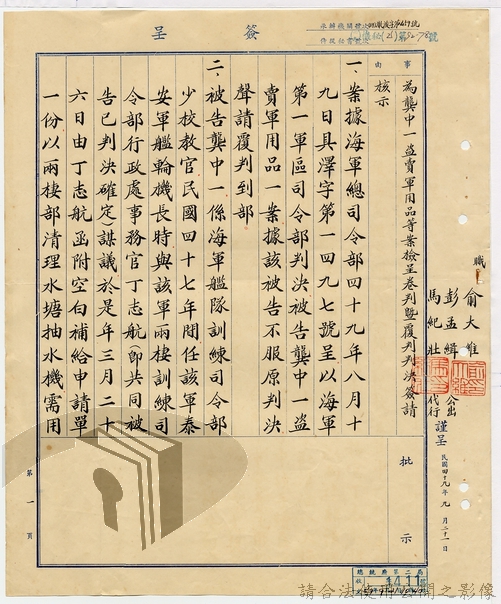 簽呈
事由
為龔中一盜賣軍用品等案檢呈卷判暨覆判判決簽請
核示
一、案據海軍總司令部四十九年八月十
九日具澤字第一四九七號呈以海軍
第一軍區司令部判決被告龔中一盜
賣軍用品一案據該被告不服原判決
聲請覆判到部
二、被告龔中一係海軍艦隊訓練司令部
少校教官民國四十七年間任該軍泰
安軍艦輪機長時與該軍兩棲訓練司
令部行政處事務官丁志航(即共同被
告已判決確定)謀議於是年三月二十
六日由丁志航函附空白補給申請單
一份以兩棲部清理水塘抽水機需用
職
俞大維
彭孟緝 公出
馬紀壯 代行
謹呈
民國四十九年九月二十一日
批示
第一頁
總統府第二局
請合法使用公開之影像